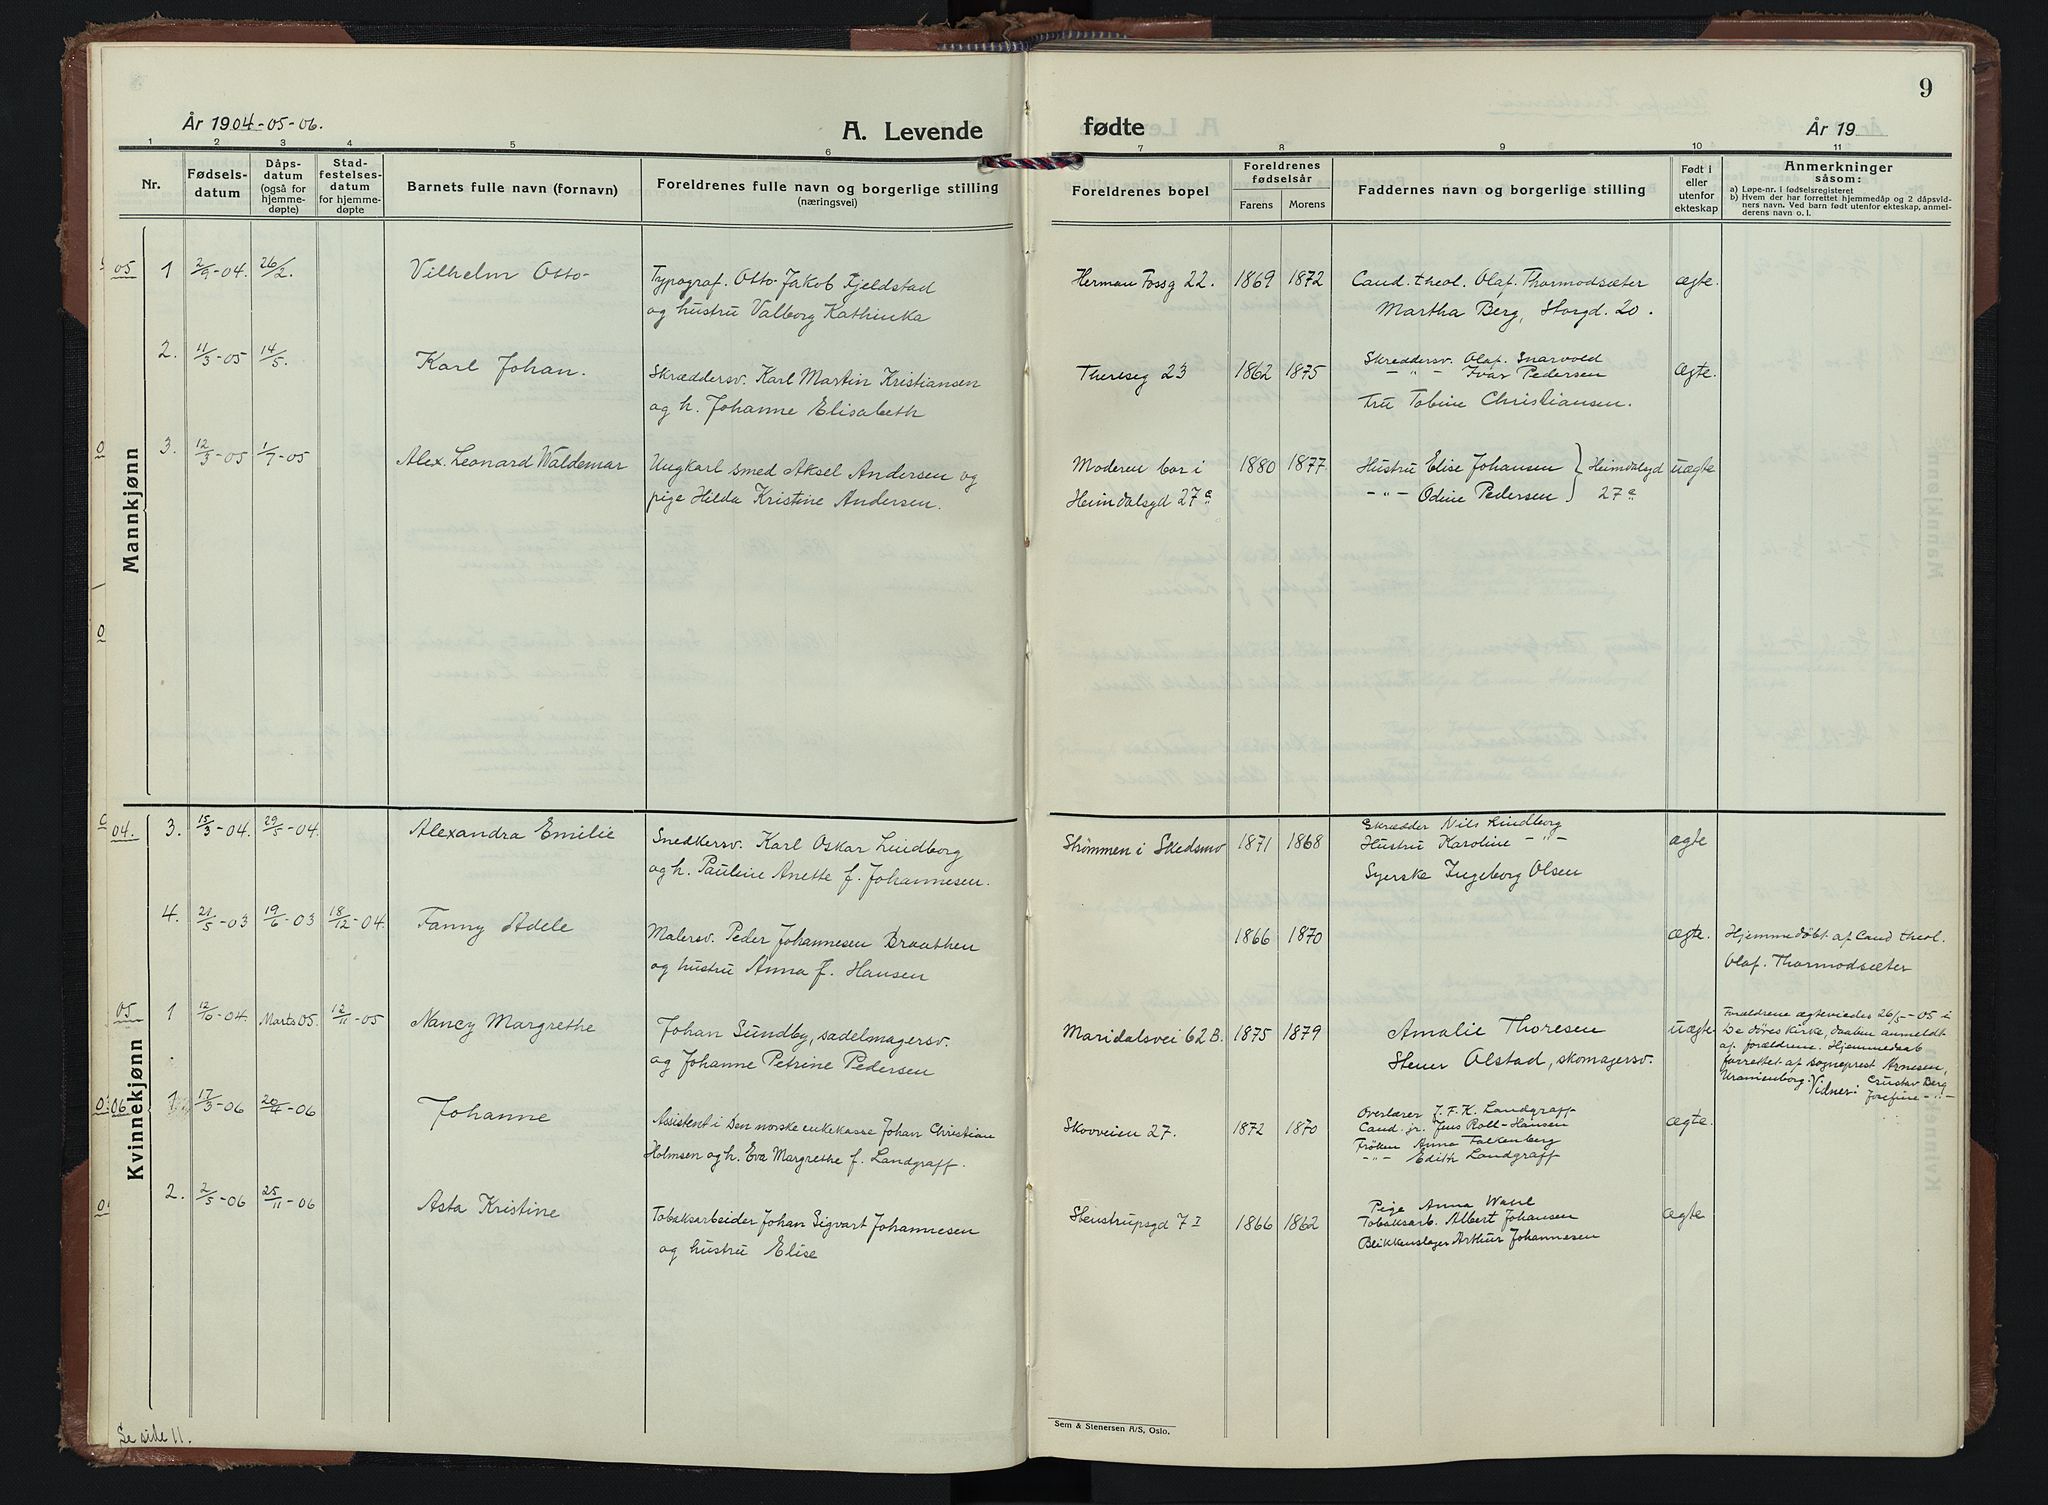 9
År 1904-05-06.
A. Levende
fødte
År 19
1 2 3 4 5 6 7 8 9 10 11
Nr.
Fødsels-
datum
Dåps-
datum
(også for
hjemme-
døpte)
Stad-
festelses-
datum
for hjemme-
døpte
Barnets fulle navn (fornavn)
Foreldrenes fulle navn og borgerlige stilling
(næringsvei)
Foreldrenes bopel
Foreldrenes
fødselsår
Farens Morens
Faddernes navn og borgerlige stilling
Født i
eller
utenfor
ekteskap
Anmerkninger
såsom:
a) Løpe-nr. i fødselsregisteret
b) Hvem der har forrettet hjemmedåp og 2 dåpsvid-
ners navn. Ved barn født utenfor ekteskap, anmel-
derens navn o. l.
Mannkjønn
05 1 2/9-04. 26/2. Vilhelm Otto Typograf. Otto Jakob Fjeldstad Herman Fossg 22. 1869 1872 Cand. theol. Olaf. Thormodsæter ægte.
og hustru Valborg Kathinka Martha Berg, Storgd. 20.
2. 11/3-05 14/5. Karl Johan. Skræddersv. Karl Martin Kristiansen Thereseg 23 1862 1875 Skreddersv. Olaf. Snarvold ægte.
-"- Ivar Pedersen
og h. Johanne Elisabeth Fru Tobine Christiansen.
3. 12/3-05 1/7-05 Alex. Leonard Waldemar Ungkarl smed Aksel Andersen og Moderen bor i 1880 1877 Hustru Elise Johansen } Heimdalsgd uægte
pige Hilda Kristine Andersen. Heimdalsgd 27c -"- Odine Pedersen 27c
Kvinnekjønn
04. 3. 15/3-04. 29/5-04. Alexandra Emilie Snedkersv. Karl Oskar Lindborg Strømmen i Skedsmo 1871 1868 Skrædder Nils Lindborg ægte
Hustru Karoline -"-
og h. Pauline Anette f. Johannesen. Syerske Ingeborg Olsen
4. 21/5-03 19/6-03 18/12-04. Fanny Adele Malersv. Peder Johannesen Braathen 1866 1870 ægte. Hjemmedøbt af Cand theol.
og hustru Anna f. Hansen Olaf. Thormodsæter
05 1 12/6-04. Marts 05. 12/11-05 Nancy Margrethe Johan Sundby, sadelmagersv. Maridalsvei 62 B. 1875 1879 Amalie Thoresen uægte Forældrene ægteviedes 26/5-05 i
og Johanne Petrine Pedersen Stener Olstad, skomagersv. De døves Kirke, daaben anmeldt
af forældrene. Hjemmedaab
forrettet af sogneprest Arnesen,
Uranienborg. Vidner: Gustav Berg
Josefine -"-
06 1 17/3-06 20/4-06 Johanne Assistent i Den norske enkekasse Johan Christian Skovveien 27. 1872 1870 Overlærer J. F. K. Landgraff ægte.
Cand. jr. Jens Roll-Hansen
Holmsen og h. Eva Margrethe f. Landgraff. Frøken Anna Falkenberg
-"- Edith Landgraff
2. 2/5-06 25/11-06 Asta Kristine Tobaksarbeider Johan Sigvart Johannesen Stenstrupsgd 7 I 1866 1862 Pige Anna Wahl ægte
Tobaksarb. Albert Johansen
og hustru Elise Blikkenslager Arthur Johannesen
Se side 11.
Sem & Stenersen A/S, Oslo.